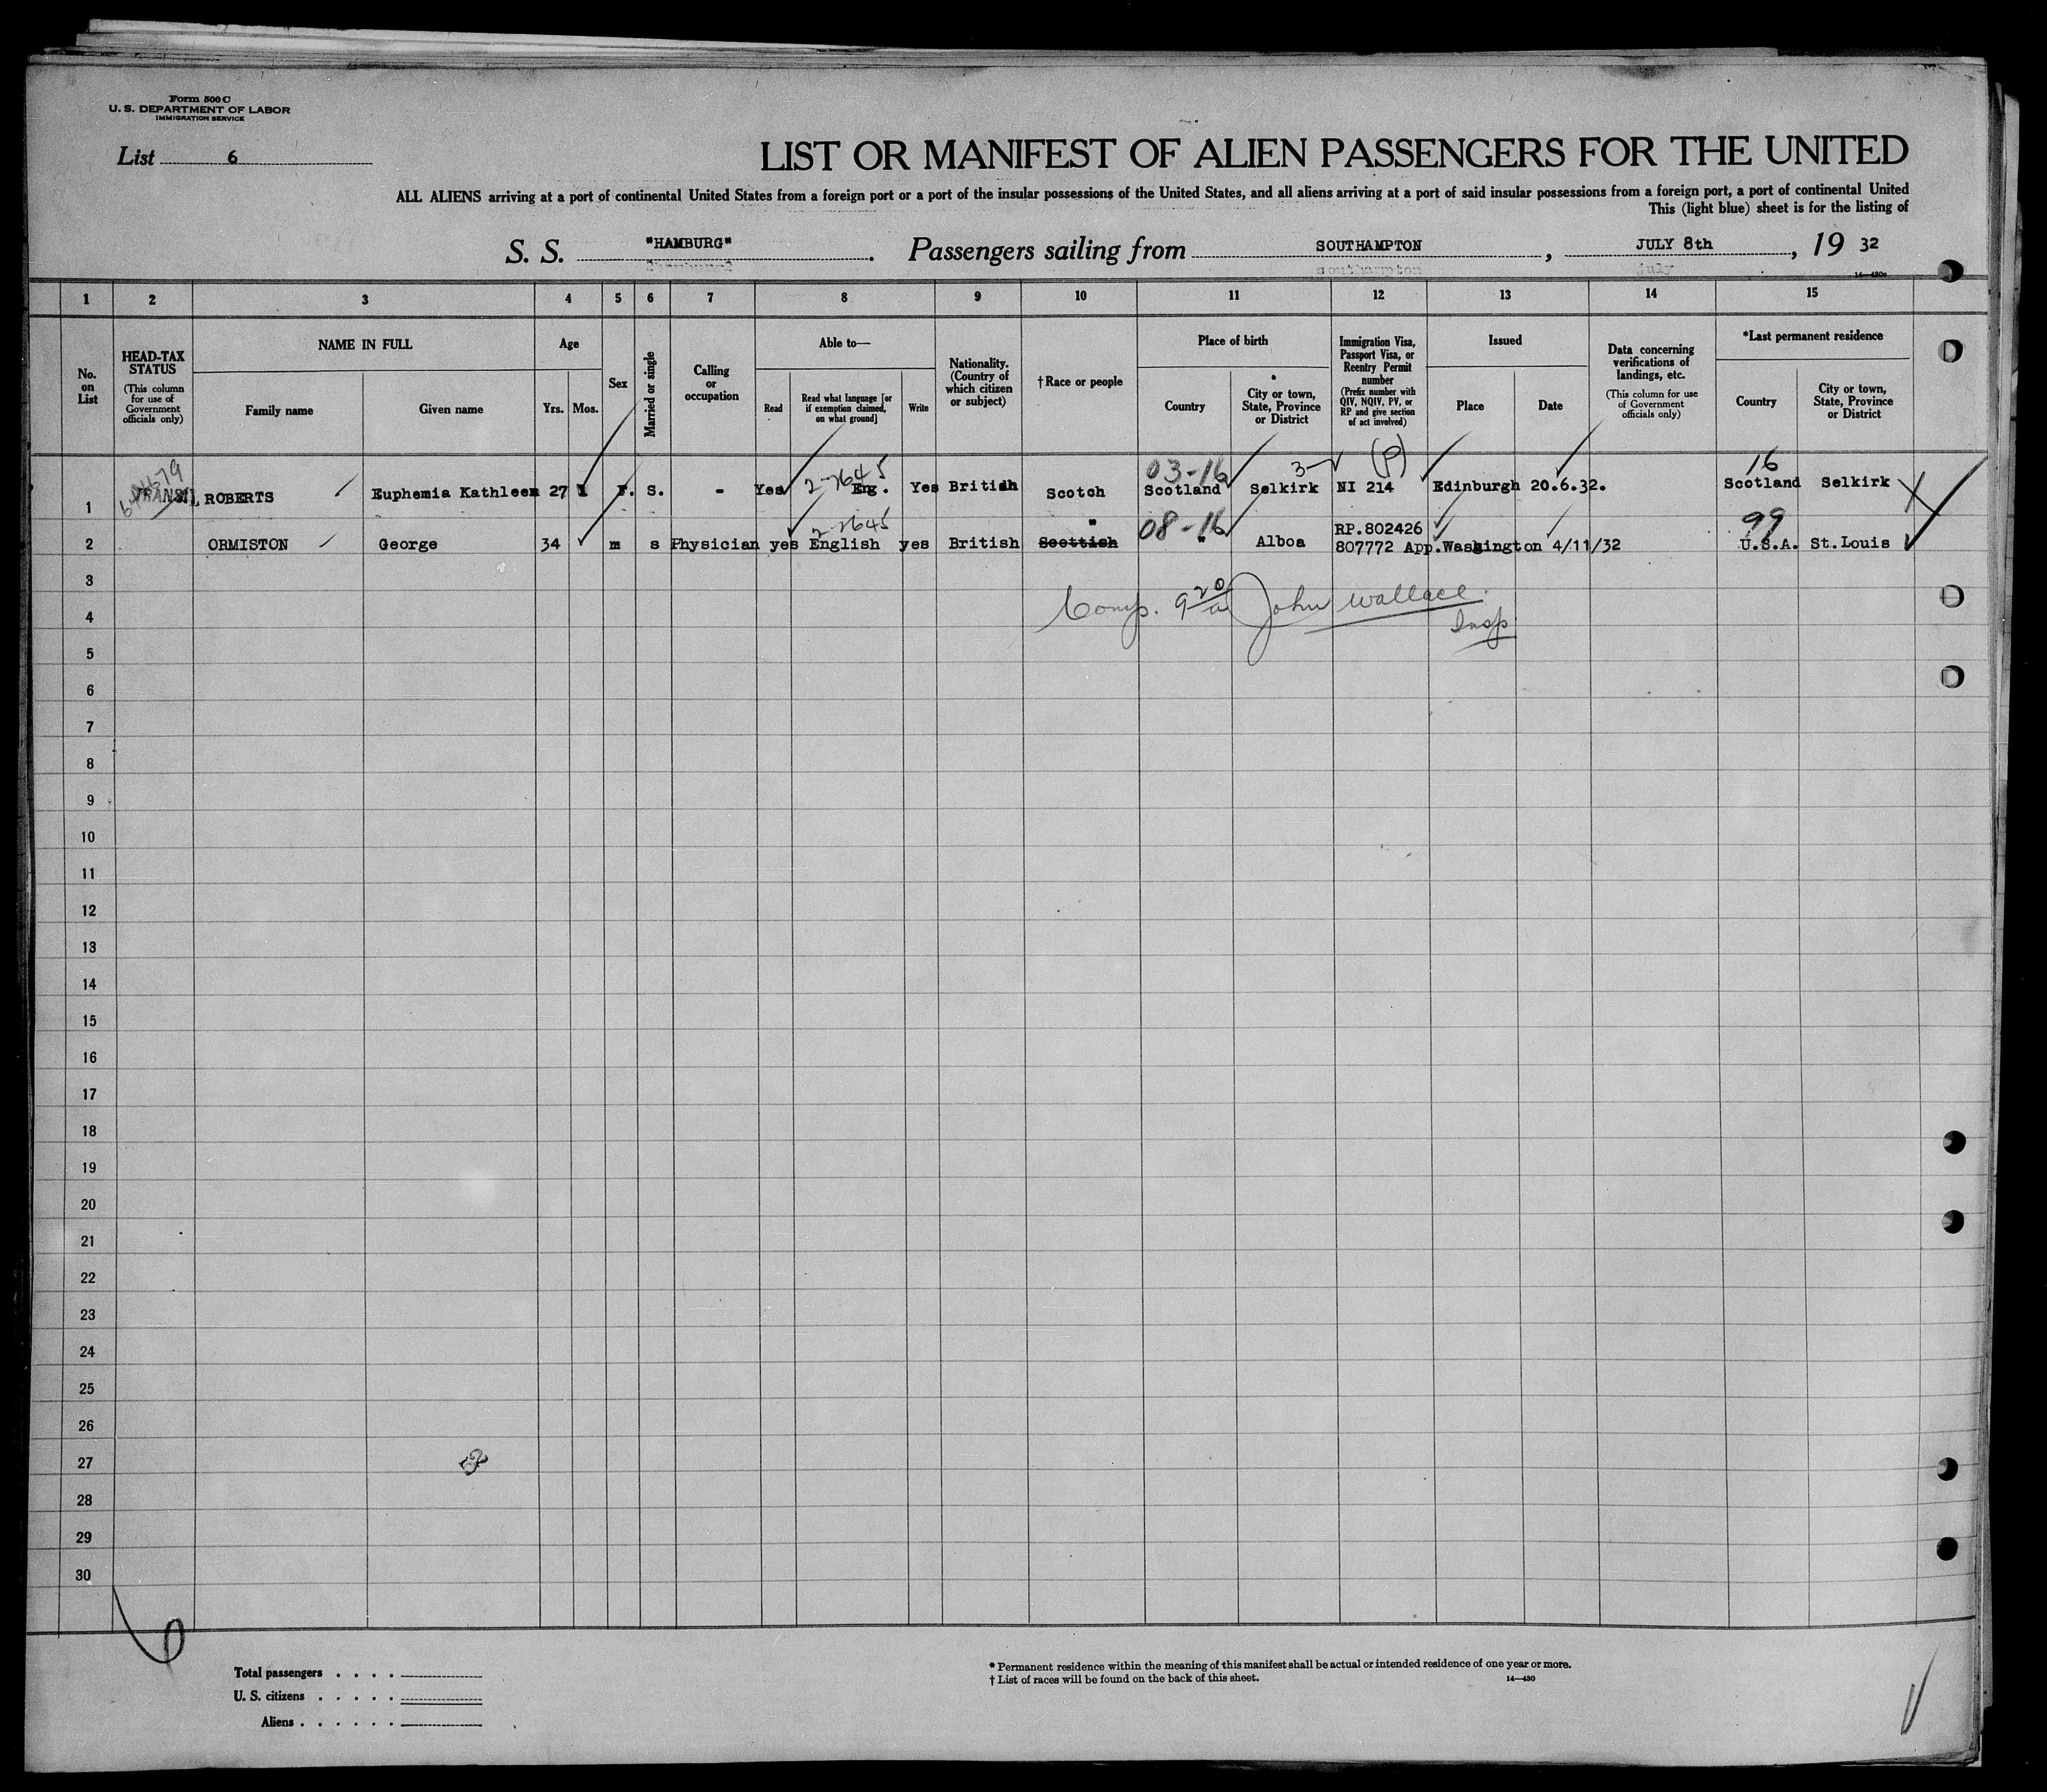 Form 500 C
U. S. DEPARTMENT OF LABOR
IMMIGRATION SERVICE
List 6
LIST OR MANIFEST OF ALIEN PASSENGERS FOR THE UNITED
ALL ALIENS arriving at a port of continental United States from a foreign port or a port of the insular possessions of the United States, and all aliens arriving at a port of said insular possessions from a foreign port, a port of continental United
This (light blue) sheet is for the listing of
S. S. "HAMBURG". Passengers sailing from SOUTHAMPTON, JULY 8th, 19 32
southampton july
14—430c
1 2 3 4 5 6 7 8 9 10 11 12 13 14 15
No. on List
HEAD-TAX STATUS
(This column for use of Government officials only)
NAME IN FULL
Family name
Given name
Age
Yrs.
Mos.
Sex
Married or single
Calling or occupation
Able to—
Read
Read what language [or if exemption claimed, on what ground]
Write
Nationality. (Country of which citizen or subject)
†Race or people
Place of birth
Country
City or town, State, Province or District
Immigration Visa, Passport Visa, or Reentry Permit number
(Prefix number with QIV, NQIV, PV, or RP and give section of act involved)
Issued
Place
Date
Data concerning verifications of landings, etc.
(This column for use of Government officials only)
*Last permanent residence
Country
City or town, State, Province or District
2-2645 03-16 3- (P) 16
1 ROBERTS Euphemia Kathleen 27 F. S. - Yes Eng. Yes British Scotch Scotland Selkirk NI 214 Edinburgh 20.6.32. Scotland Selkirk
2-2645 " 08-16 RP.802426 99
2 ORMISTON George 34 m s Physician yes English yes British Scottish " Alboa 807772 App.Washington 4/11/32 U.S.A. St.Louis
3
Comp. 9 20/a John Wallace
4
Insp
5
6
7
8
9
10
11
12
13
14
15
16
17
18
19
20
21
22
23
24
25
26
27
28
29
30
6
Total passengers . . . .
U. S. citizens . . . . .
Aliens . . . . . .
* Permanent residence within the meaning of this manifest shall be actual or intended residence of one year or more.
† List of races will be found on the back of this sheet.
14—430